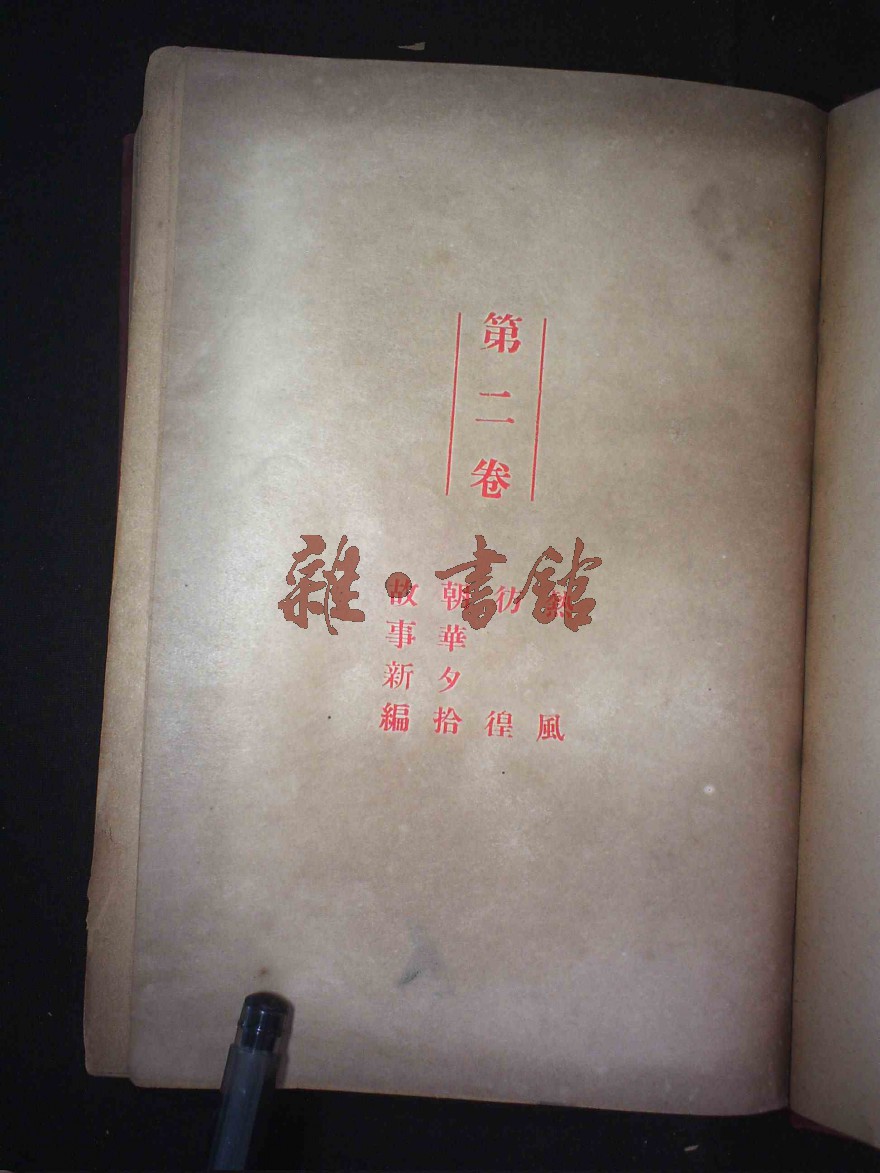 第二卷
熱風
彷徨
朝華夕拾
故事新編
雜·書館